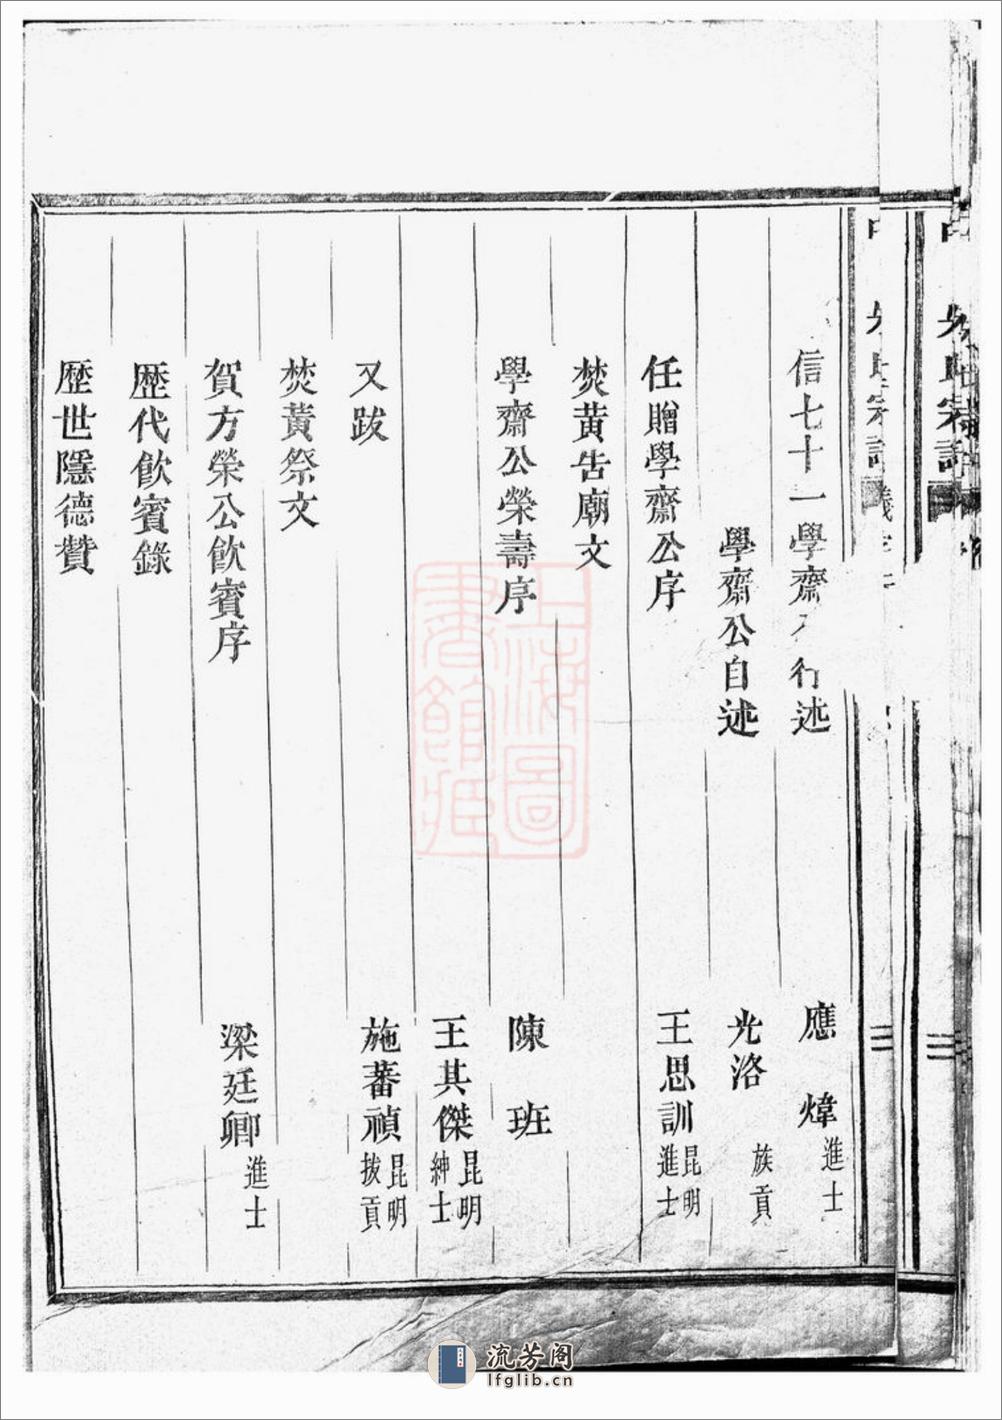 信七十一學齋行述 應煒 進士
學齋公自述 光洛 族貢
任贈學齋公序 王思訓 昆明進士
焚黃告廟文
學齋公榮壽序 陳班
王其傑 昆明紳士
又跋 施蕃禎 昆明拔貢
焚黃祭文
賀方榮公飲賓序 梁廷卿 進士
歷代飲賓錄
歷世隱德贊
上海圖書館藏
流芳阁
lfglib.cn